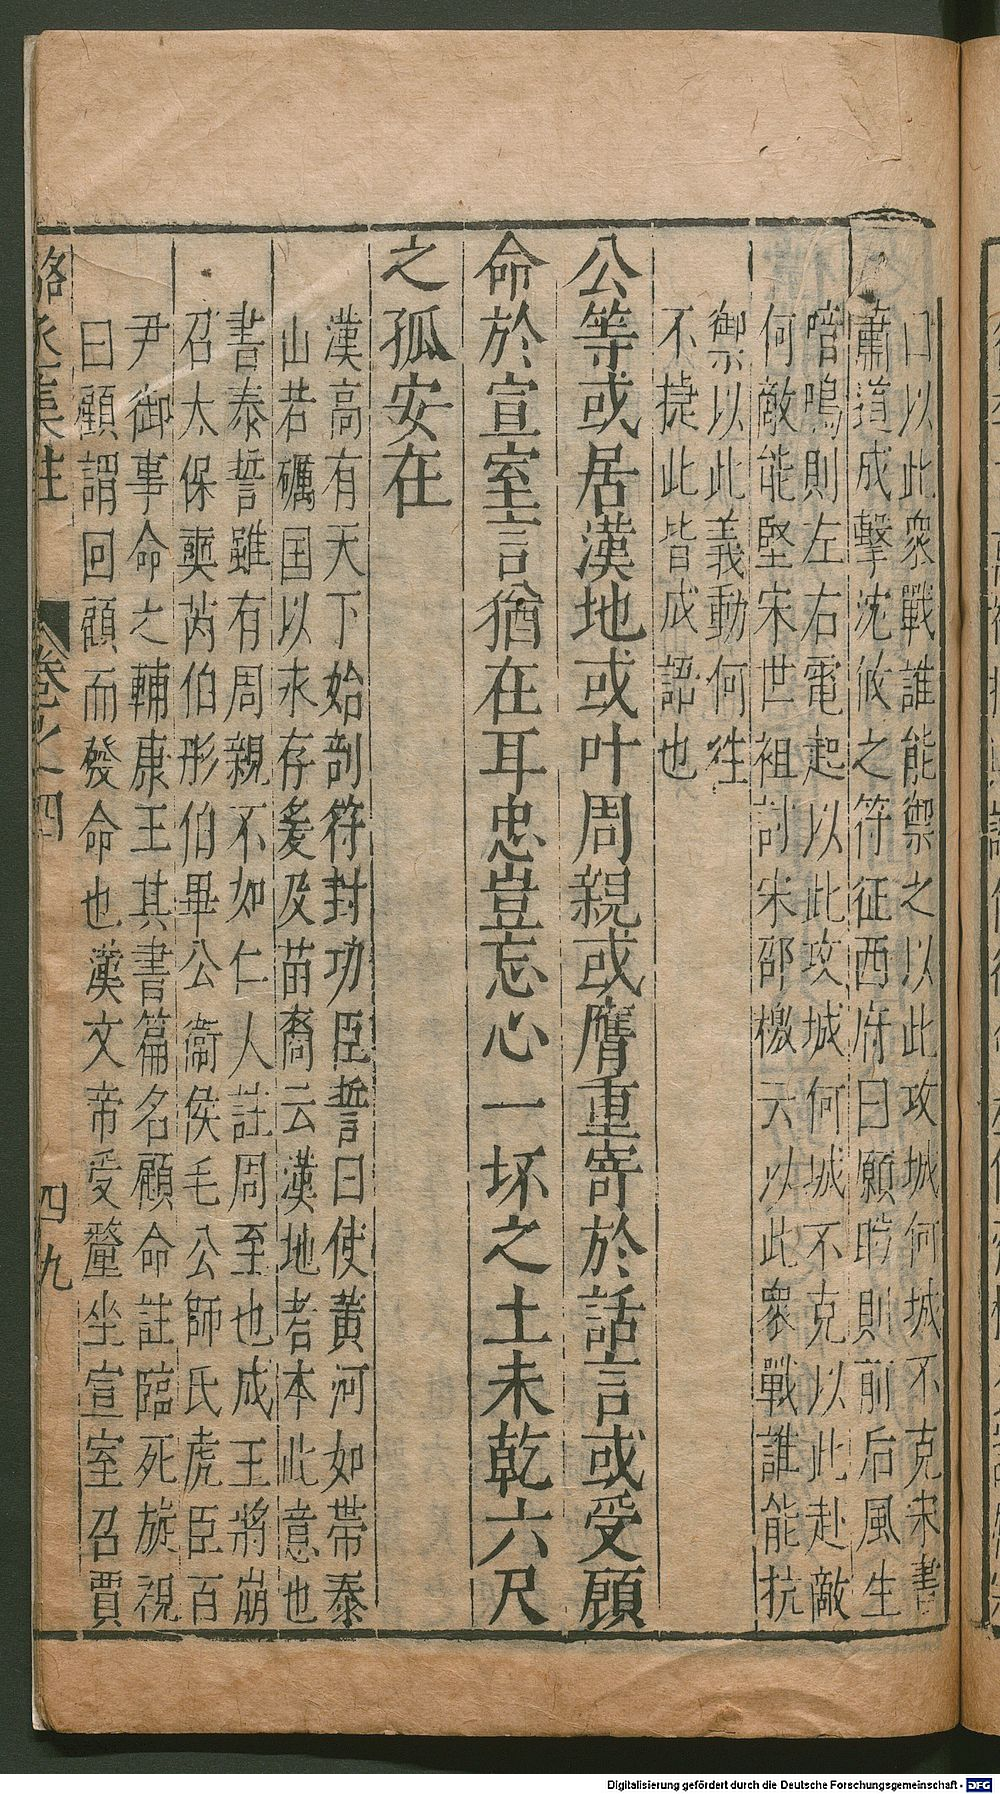 口以此衆戰誰能禦之以此攻城何城不克宋書
蕭道成擊沈攸之符征西府曰願時則前后風生
喑鳴則左右電起以此攻城何城不克以此赴敵
何敵能堅宋世祖討宋邵檄云以此衆戰誰能抗
禦以此義動何往
不捷此皆成認也
公等或居漢地或叶周親或膺重寄於話言或受顧
命於宣室言猶在耳忠豈忘心一坏之土未乾六尺
之孤安在
漢高有天下始剖符封功臣誓曰使黃河如帶泰
山若礪国以永存爰及苗裔云漢地者本此意也
書泰誓雖有周親不如仁人註周至也成王將崩
召太保奭芮伯彤伯畢公衞侯毛公師氏虎臣百
尹御事命之輔康王其書篇名顧命註臨死旋視
曰顧謂回顧而發命也漢文帝受釐坐宣室召賈
駱丞集註 卷之四 四九
Digitalisierung gefördert durch die Deutsche Forschungsgemeinschaft - DFG